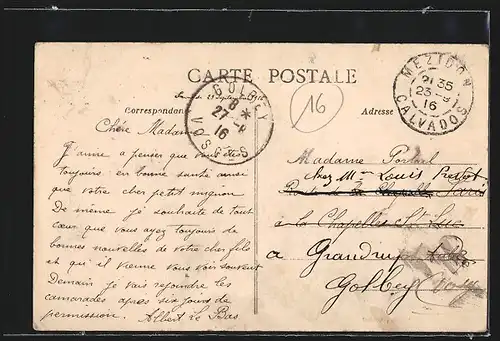 CARTE POSTALE
Correspondance
Adresse
GOLBEY
8
27-9
16
VOSGES
16
MEZIDON
21 35
23-9
16
CALVADOS
Chère Madame
J'aime a penser que vous êtes
toujours en bonne santé ainsi
que votre cher petit mignon
De même je souhaite de tout
cœur que vous ayez toujours de
bonnes nouvelles de votre cher fils
et qu'il vienne vous voir souvent
Demain je vais rejoindre les
camarades apres six jours de
permission. Albert Le Bas
Madame
chez Mme Louis
à la Chapelle St Luc
a
Golbey Vosges